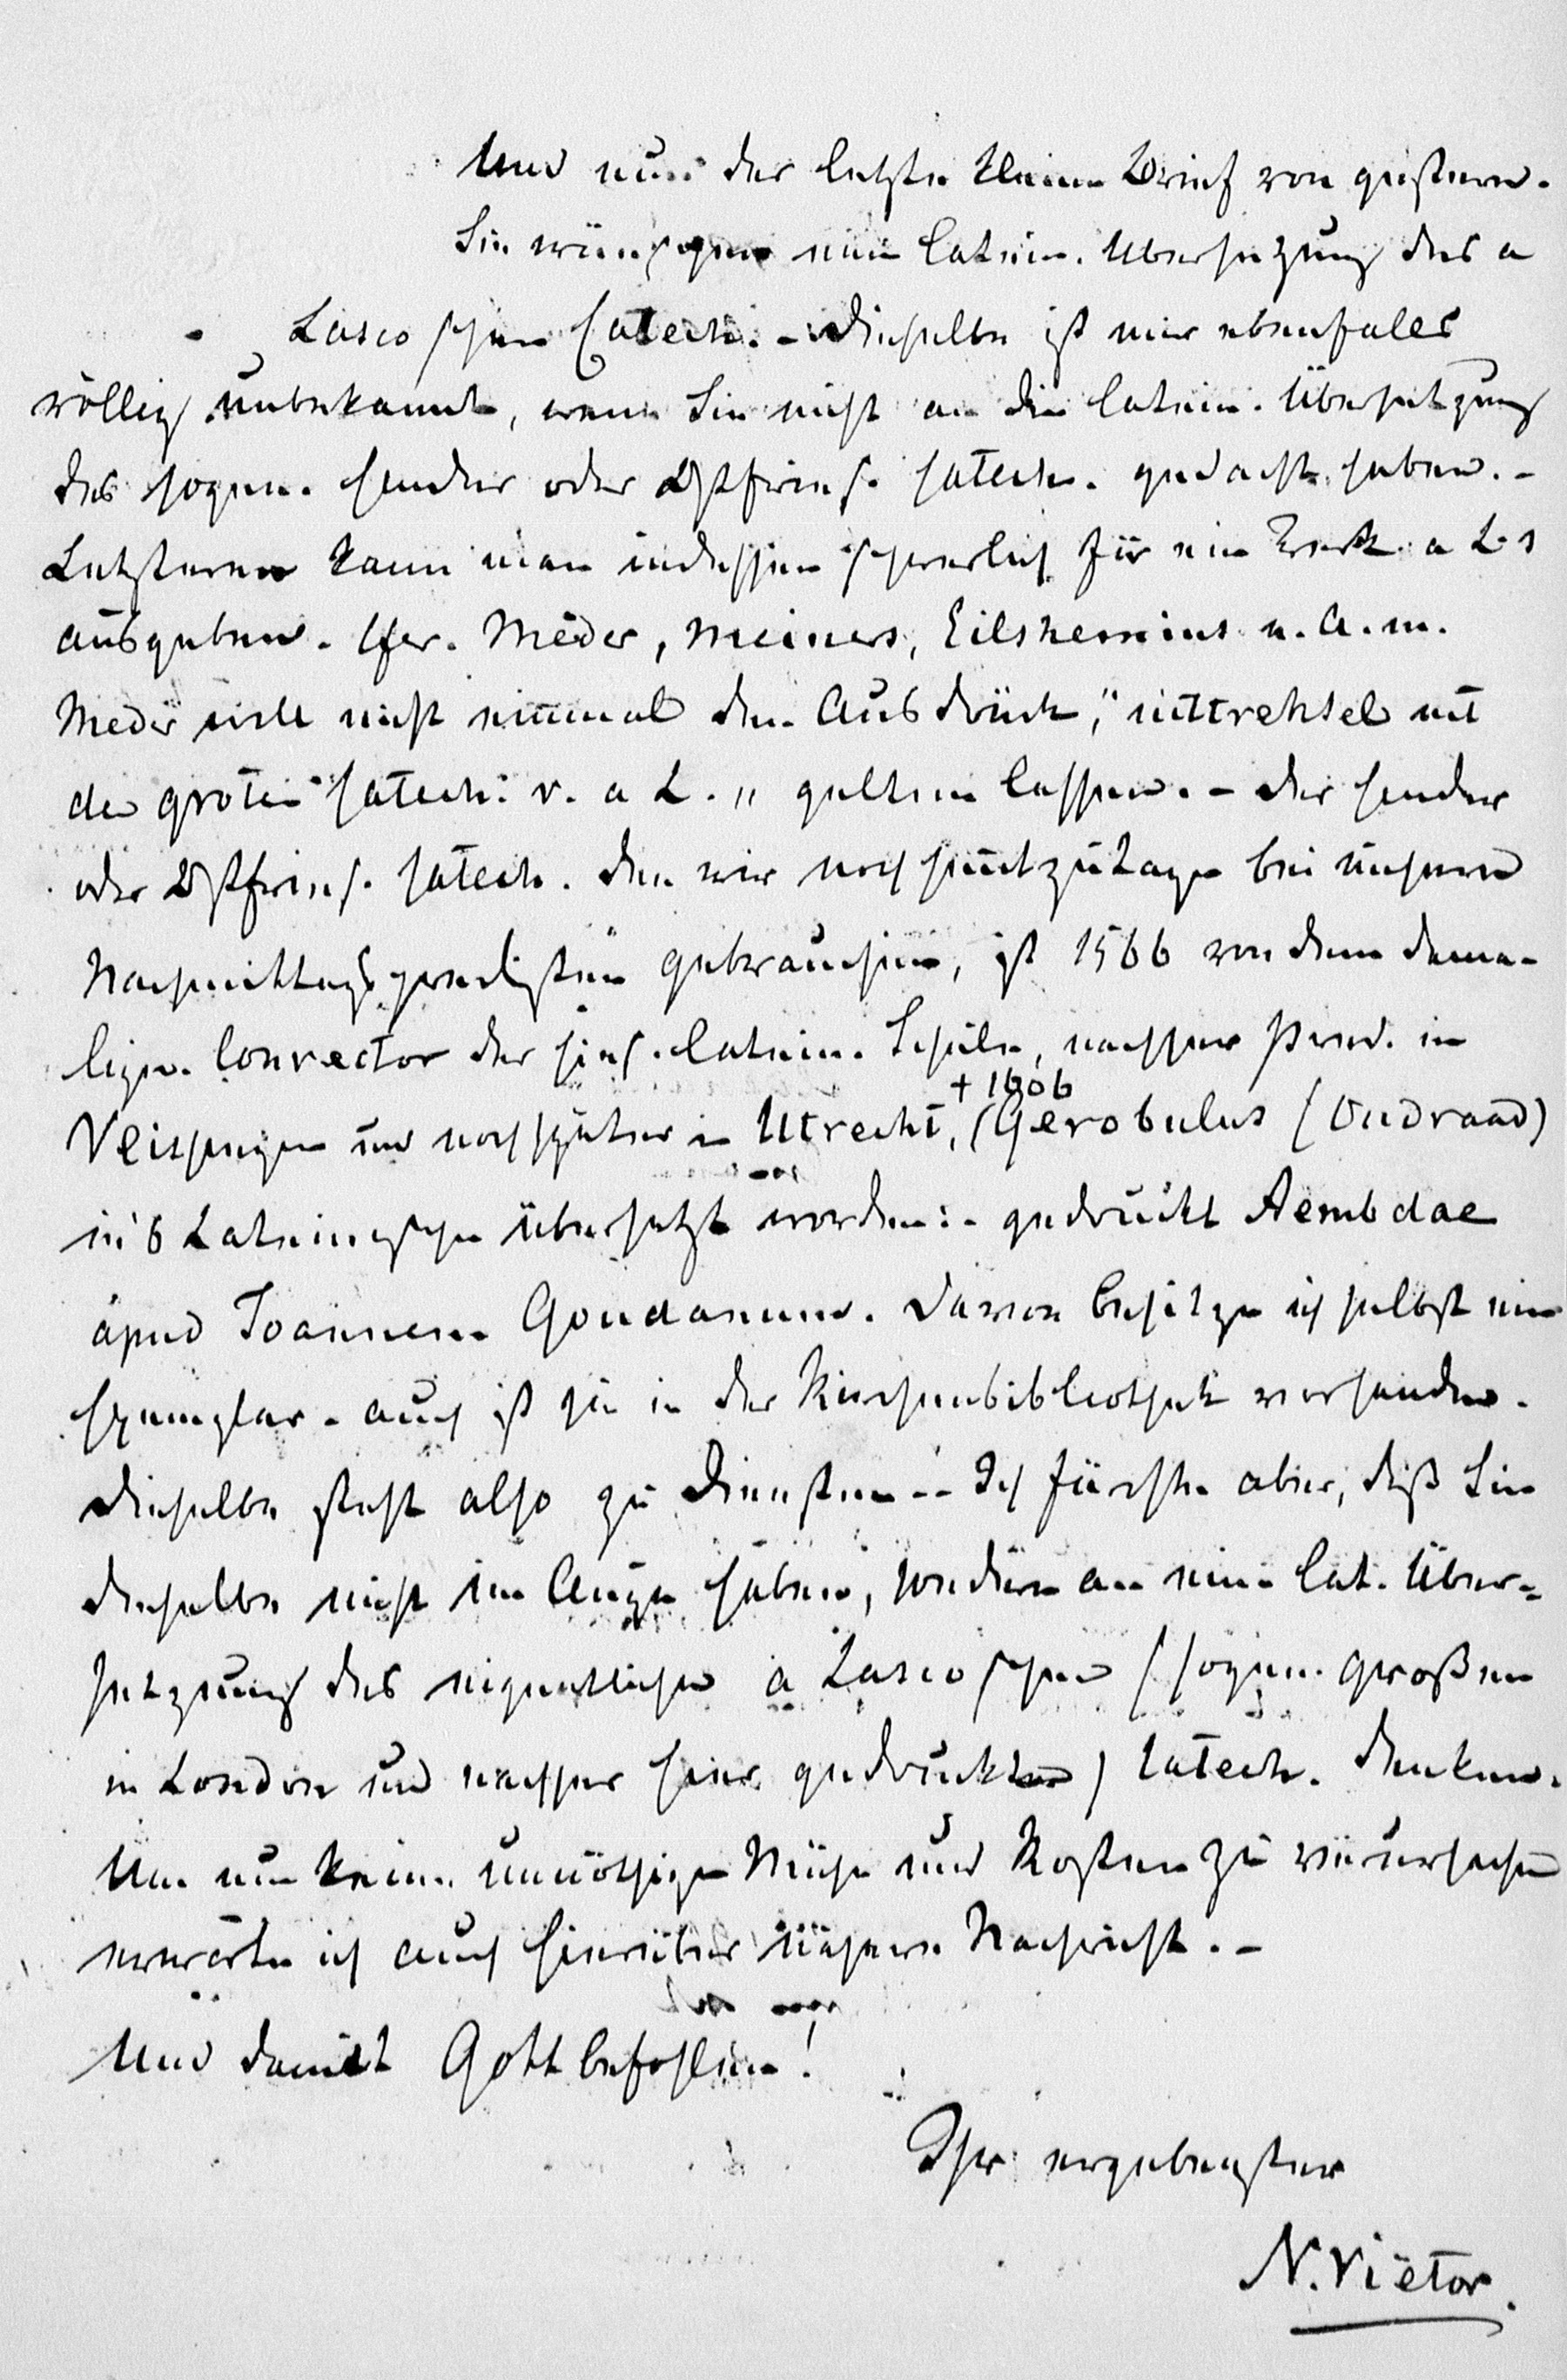 Und nun der letzte kleine Brief von gestern.
Sie wünschen eine latein. Übersetzung des a
Lasco'schen Catech. – Dieselbe ist mir ebenfalls
völlig unbekannt, wenn Sie nicht an die latein. Übersetzung
des sogen. Emder oder Ostfries. Catech. gedacht haben. –
Letzteren kann man indessen schwerlich für ein Werk a L's
ausgeben. Cfer. Meder, Meiners, Eilshemius u. A. m.
Meder will nicht einmal den Ausdruck, "uittrehsel uit
de grote Catech. v. a L." gelten lassen. – Der Emder
oder Ostfries. Catech. den wir noch heutzutage bei unsern
Nachmittagspredigten gebrauchen, ist 1566 von dem dama-
ligen Conrector der hies. latein. Schule, nachher Pred. in
Vlissingen und noch später in Utrecht, († 1606 Gerobulus (Oudraad)
in's Lateinische übersetzt worden: – gedruckt Aembdae
apud Joannem Goudanum. Davon besitze ich selbst ein
Exemplar – auch ist sie in der Kirchenbibliothek vorhanden.
Dieselbe steht also zu Diensten – Ich fürchte aber, daß Sie
dieselbe nicht im Auge haben, sondern an eine lat. Über-
setzung des eigentlichen a Lasco'schen (sogen. großen
in London und nachher hier gedruckten) Catech. denken.
Um nun keine unnöthige Mühe und Kosten zu verursachen
erwarte ich auch hierüber nähere Nachricht. –
Und damit Gott befohlen!
Ihr ergebenster
N. Viëtor.